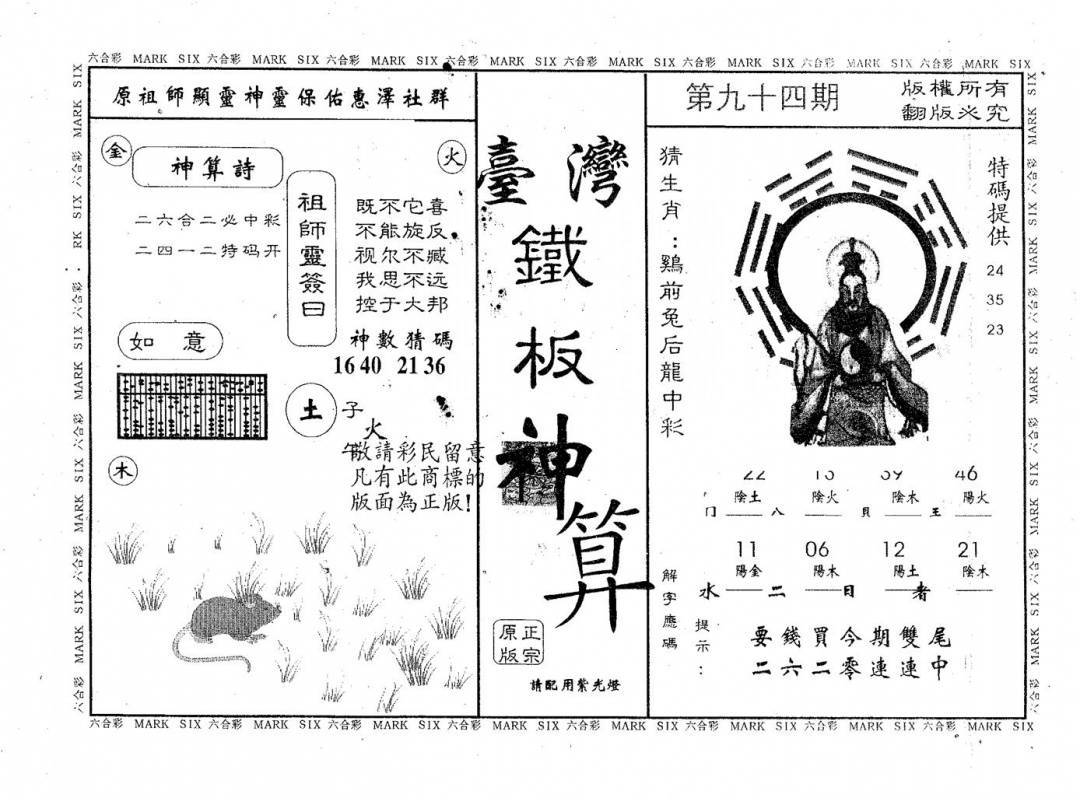 六合彩 MARK SIX 六合彩 MARK SIX 六合彩 MARK SIX 六合彩 MARK SIX 六合彩 MARK SIX 六合彩 MARK SIX 六合彩 MARK SIX 六合彩 MARK SIX
原祖師顯靈神靈保佑惠澤社群
金
火
神算詩
二六合二必中彩
二四一二特码开
祖師靈簽曰
既不它喜
不能旋反
视尔不臧
我思不远
控于大邦
神數猜碼
16 40 21 36
如意
土
子
火
午
敬請彩民留意
凡有此商標的
版面為正版!
木
臺灣
鐵
板
神
算
正宗
原版
請配用紫光燈
第九十四期
版權所有
翻版必究
猜生肖:鷄前兔后龍中彩
特碼提供
24
35
23
22 46
陰土 陰火 陰木 陽火
八 貝 王
11 06 12 21
陽金 陽木 陽土 陰木
水 二 日 者
解字應碼
提示:
要錢買今期雙尾
二六二零連連中
六合彩 MARK SIX 六合彩 MARK SIX 六合彩 MARK SIX 六合彩 MARK SIX 六合彩 MARK SIX 六合彩 MARK SIX 六合彩 MARK SIX 六合彩 MARK SIX